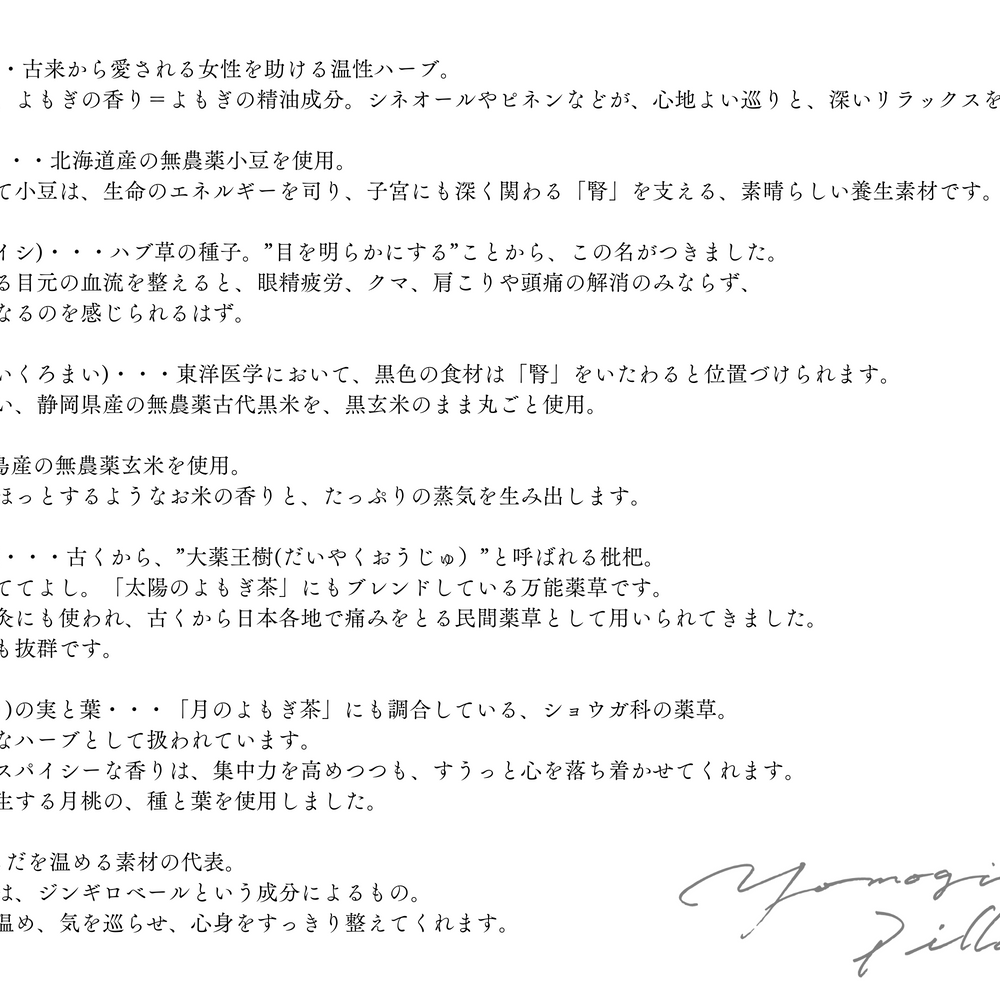 ・古来から愛される女性を助ける温性ハーブ。
よもぎの香り＝よもぎの精油成分。シネオールやピネンなどが、心地よい巡りと、深いリラックスを
・・北海道産の無農薬小豆を使用。
て小豆は、生命のエネルギーを司り、子宮にも深く関わる「腎」を支える、素晴らしい養生素材です。
イシ)・・・ハブ草の種子。”目を明らかにする”ことから、この名がつきました。
る目元の血流を整えると、眼精疲労、クマ、肩こりや頭痛の解消のみならず、
なるのを感じられるはず。
いくろまい)・・・東洋医学において、黒色の食材は「腎」をいたわると位置づけられます。
い、静岡県産の無農薬古代黒米を、黒玄米のまま丸ごと使用。
島産の無農薬玄米を使用。
ほっとするようなお米の香りと、たっぷりの蒸気を生み出します。
・・・古くから、”大薬王樹(だいやくおうじゅ）”と呼ばれる枇杷。
ててよし。「太陽のよもぎ茶」にもブレンドしている万能薬草です。
灸にも使われ、古くから日本各地で痛みをとる民間薬草として用いられてきました。
も抜群です。
)の実と葉・・・「月のよもぎ茶」にも調合している、ショウガ科の薬草。
なハーブとして扱われています。
スパイシーな香りは、集中力を高めつつも、すうっと心を落ち着かせてくれます。
生する月桃の、種と葉を使用しました。
だを温める素材の代表。
は、ジンギロベールという成分によるもの。
温め、気を巡らせ、心身をすっきり整えてくれます。
Yomogi